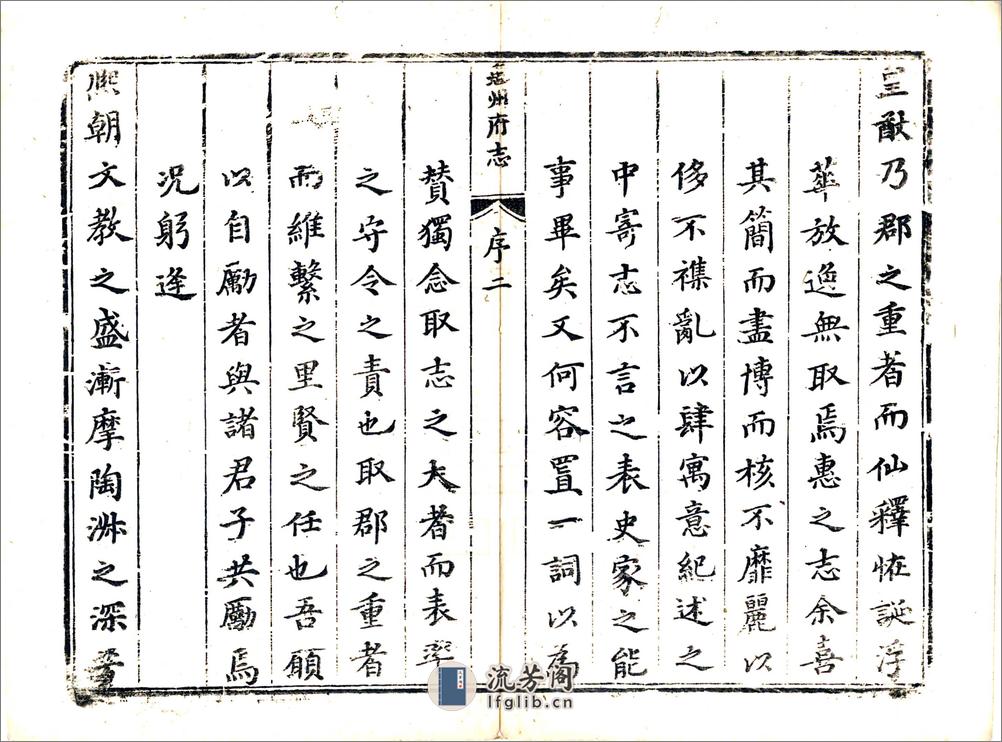 皇猷乃郡之重者而仙釋恠誕浮
華放逸無取焉惠之志余喜
其簡而盡博而核不靡麗以
侈不襍亂以肆寓意紀述之
中寄志不言之表史家之能
事畢矣又何容置一詞以為
州府志
序
二
贊獨念取志之大者而表率
之守令之責也取郡之重者
而維繫之里賢之任也吾願
以自勵者與諸君子共勵焉
況躬逢
熙朝文教之盛漸摩陶淑之深
流芳阁
lfglib.cn